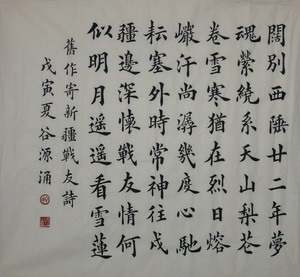 闊別西陲廿二年夢
魂縈繞系天山梨花
卷雪寒猶在烈日熔
巖汗尚潺幾度心馳
耘塞外時常神往戍
疆邊深懷戰友情何
似明月遥遥看雪蓮
舊作寄新疆戰友詩
戊寅夏谷源涌